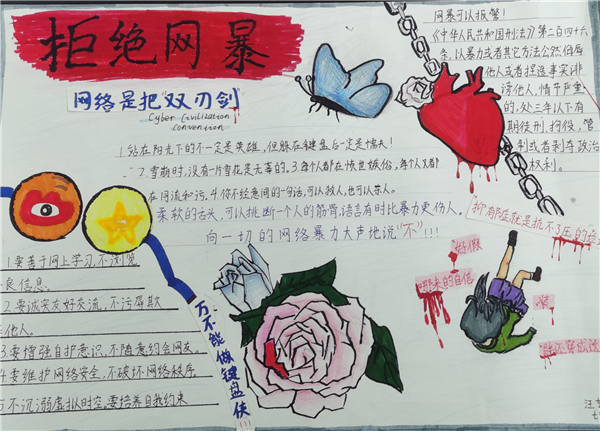 拒绝网暴
网络是把"双刃剑"
Cyber Civilization
Convention
网暴可以报警!
《中华人民共和国刑法》第二百四十六
条,以暴力或者其它方法公然侮辱
他人或者捏造事实诽
谤他人,情节严重
的,处三年以下有
期徒刑,拘役,管
制或者剥夺政治
权利。
1.站在阳光下的不一定是英雄,但躲在键盘后一定是懦夫!
2.雪崩时,没有一片雪花是无辜的.3.每个人都在愤世嫉俗,每个人又都
在同流和污.4.你不经意间的一句话,可以救人,也可以杀人.
柔软的舌头,可以挑断一个人的筋骨,语言有时比暴力更伤人.
向一切的网络暴力大声地说"不"!!!
抑郁症就是抗不了压的
好假
哪来的自信
1.要善于网上学习,不浏览
良信息.
2.要诚实友好交流,不污辱欺
他人.
3.要增强自护意识,不随意约会网友.
4.要维护网络安全,不破坏网络秩序
不沉溺虚拟时空,要培养自我约束
万不能做键盘侠!!!